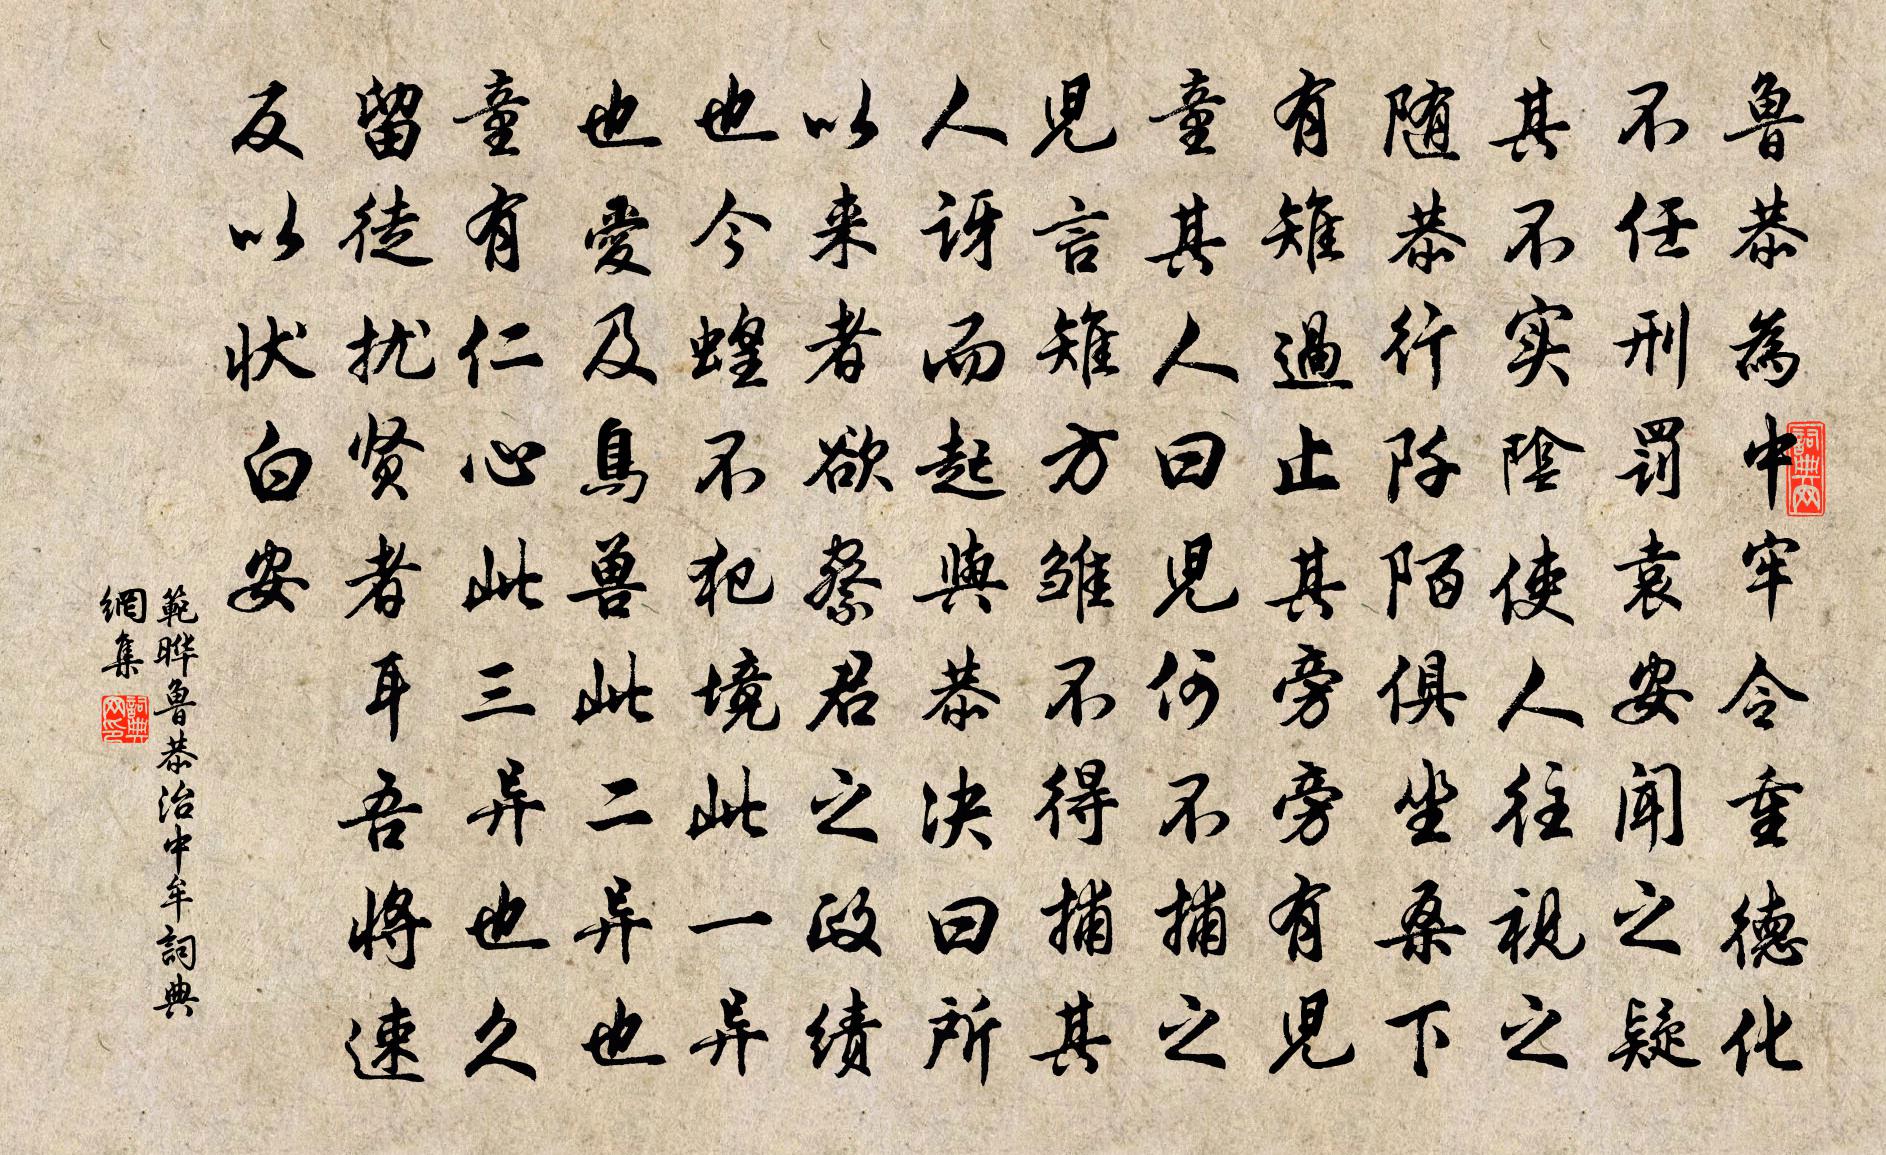 魯恭為中牢令重德化
不任刑罰袁安闻之疑
其不实陰使人往視之
随恭行阡陌俱坐桑下
有雉過止其旁旁有児
童其人曰児何不捕之
児言雉方雏不得捕其
人讶而起與恭决曰所
以来者欲察君之政绩
也今蝗不犯境此一异
也爱及鳥兽此二异也
童有仁心此三异也久
留徒扰贤者耳吾将速
反以状白安
範晔魯恭治中牟詞典
網集
詞典网
詞典网印